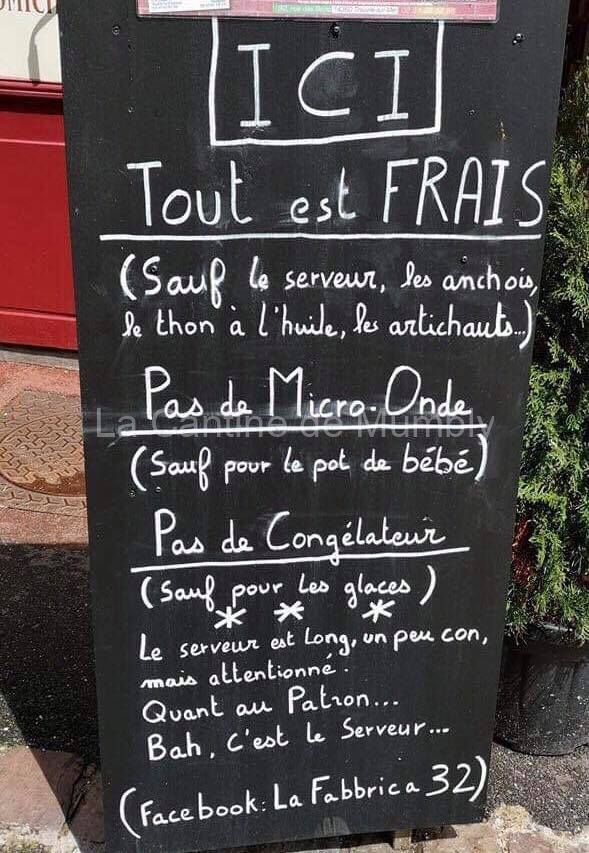 ICI
Tout est FRAIS
(Sauf le serveur, les anchois,
le thon à l'huile, les artichauts...)
Pas de Micro-Onde
La Cantine de Mumbly
(Sauf pour le pot de bébé)
Pas de Congélateur
(Sauf pour les glaces)
* * *
Le serveur est Long, un peu con,
mais attentionné.
Quant au Patron...
Bah, C'est le Serveur...
(Facebook: La Fabbrica 32)